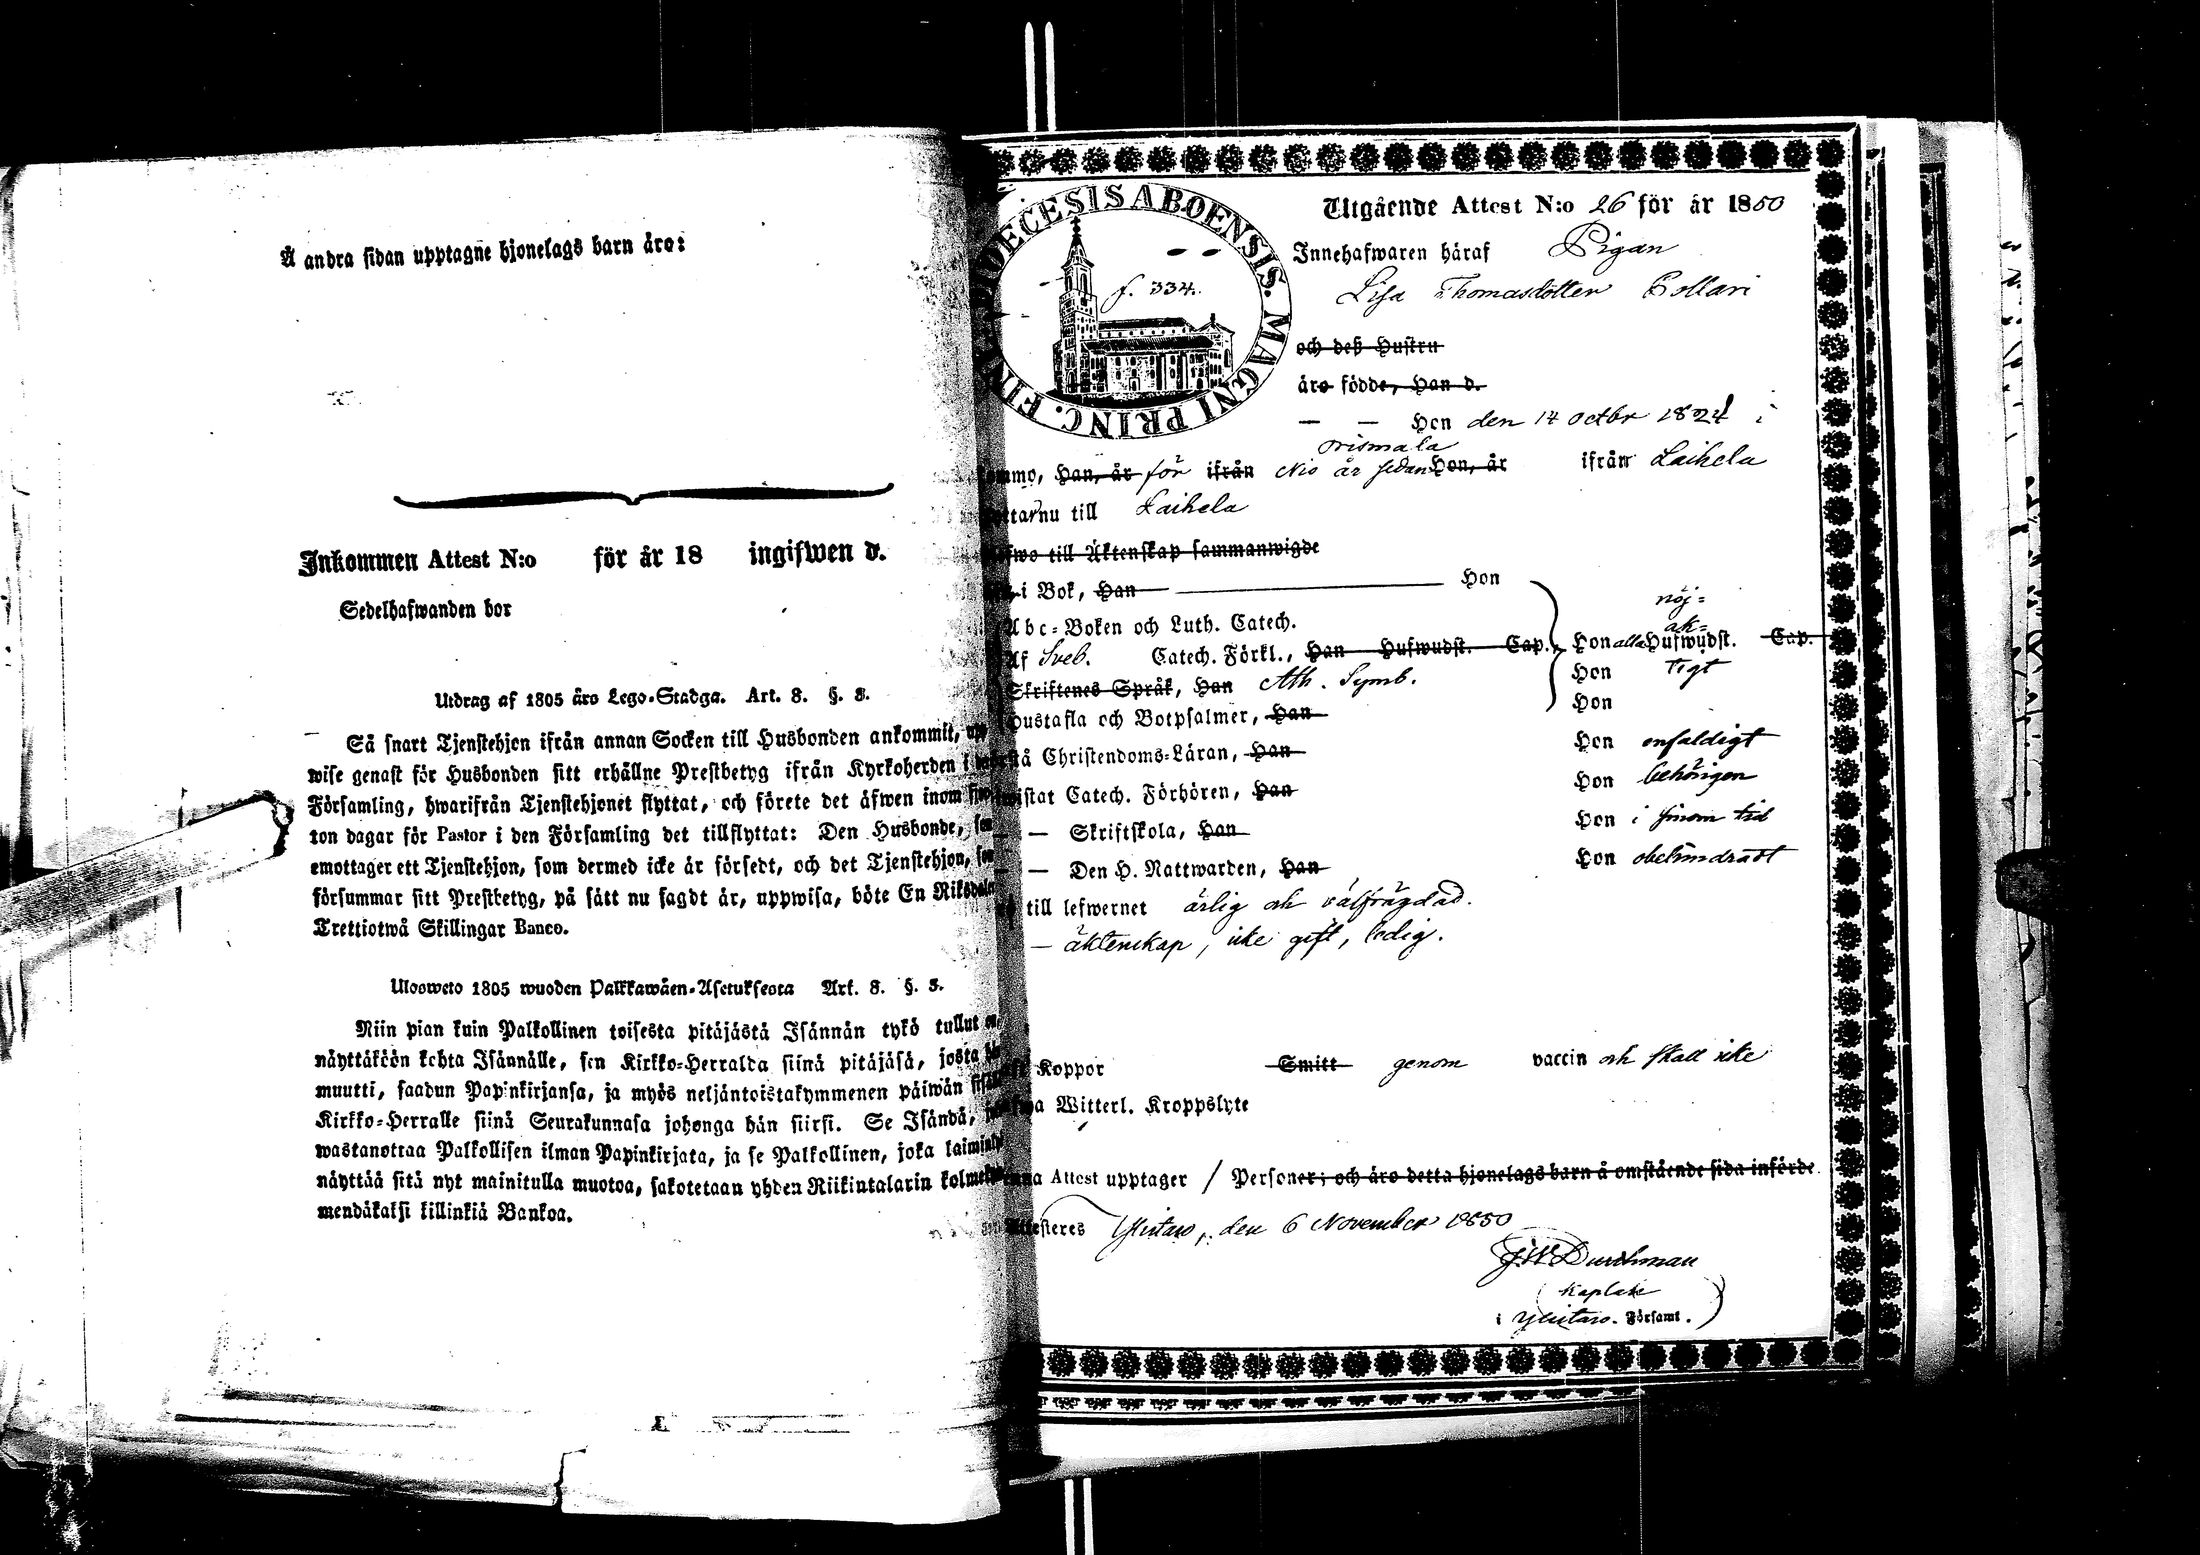 Å andra sidan upptagne hjonelags barn äro:
Inkommen Attest N:o för år 18 ingifwen d.
Sedelhafwanden bor
Utdrag af 1805 års Lego-Stadga. Art. 8. §. 3.
Så snart Tjenstehjon ifrån annan Socken till Husbonden ankommit, upp
wise genast för Husbonden sitt erhållne Prestbetyg ifrån Kyrkoherden i
Församling, hwarifrån Tjenstehjonet flyttat, och förete det äfwen inom
ton dagar för Pastor i den Församling det tillflyttat: Den Husbonde,
emottager ett Tjenstehjon, som dermed icke är försedt, och det Tjenstehjon,
försummar sitt Prestbetyg, på sätt nu sagdt är, uppwisa, böte En Riksdaler
Trettiotwå Skillingar Banco.
Ulosweto 1805 wuoden Palkkawäen-Asetuksesta Art. 8. §. 3.
Niin pian kuin Palkollinen toisesta pitäjästä Isännän tykö tullut on,
näyttäköön kohta Isännälle, sen Kirkko-Herralda siinä pitäjäsä, josta hän
muutti, saadun Papinkirjansa, ja myös neljäntoistakymmenen päiwän
Kirkko-Herralle siinä Seurakunnasa johonga hän siirsi. Se Isändä,
wastanottaa Palkollisen ilman Papinkirjata, ja se Palkollinen, joka
näyttää sitä nyt mainitulla muotoa, sakotetaan yhden Riikintalarin
mendäkaksi killinkiä Bankoa.
DIOECESIS ABOENSIS. MAGNI PRINC. FIN
f. 334.
Utgående Attest N:o 26 för år 1850
Innehafwaren häraf Pigan
Lisa Thomasdotter Pollari
och deß Hustru
äro födde, Han d.
— — Hon den 14 octbr 1824 i
Orismala
kommo, Han, år för ifrån Nio år sedan Hon, år ifrån Laihela
nu till Laihela
till Äktenskap sammanwigde
i Bok, Han Hon
Abc-Boken och Luth. Catech. nöj=
Af Sveb. Catech. Förkl., Han Hufwudst. Cap. Hon alla Hufwudst. ak= Cap.
Skriftenes Språk, Han Ath. Symb. Hon tigt
Hustafla och Botpsalmer, Han Hon
Christendoms-Läran, Han Hon enfaldigt
Catech. Förhören, Han Hon behörigen
— Skriftskola, Han Hon i sinom tid
— Den H. Nattwarden, Han Hon obehindradt
till lefwernet ärlig och välfrägdad.
— äktenskap, icke gift, ledig.
Koppor Smitt genom vaccin och skall icke
Witterl. Kroppslyte
Attest upptager / Personer; och äro detta hjonelags barn å omstående sida införde
Attesteres Ylistaro, den 6 November 1850
J. W. Durchman
Kaplan
i Ylistaro. Församl.